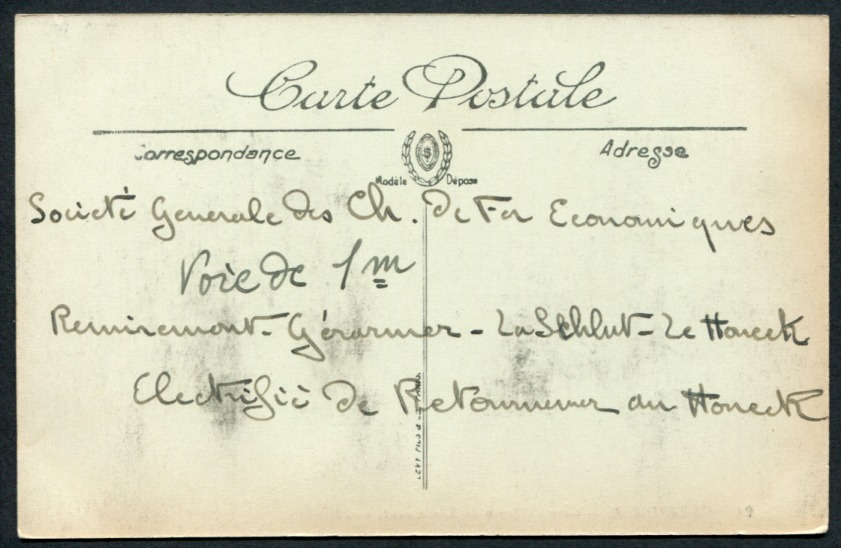 Carte Postale
Correspondance
Adresse
$
Modèle Déposé
Societé Generale des Ch. de Fer Economiques
Voie de 1m
Remiremont - Gérarmer - La Schlut - Le Honeck
Electrifié de Retournemer au Honeck